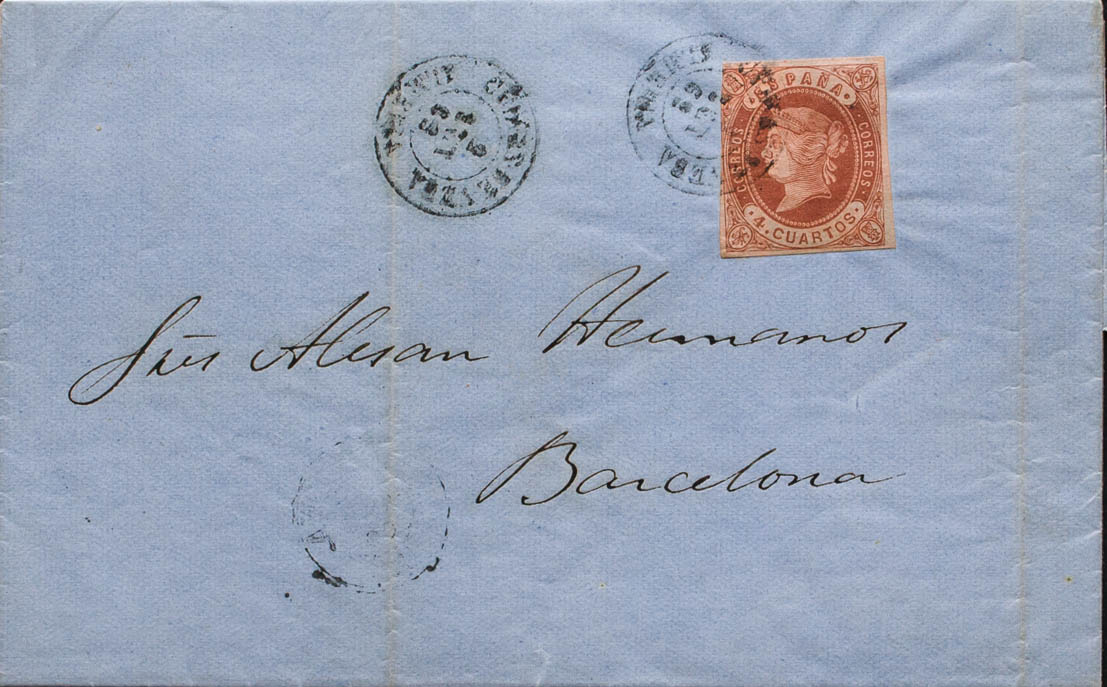 ESPAÑA
CORREOS
CORREOS
4. CUARTOS
Sres Alesan Hermanos
Barcelona